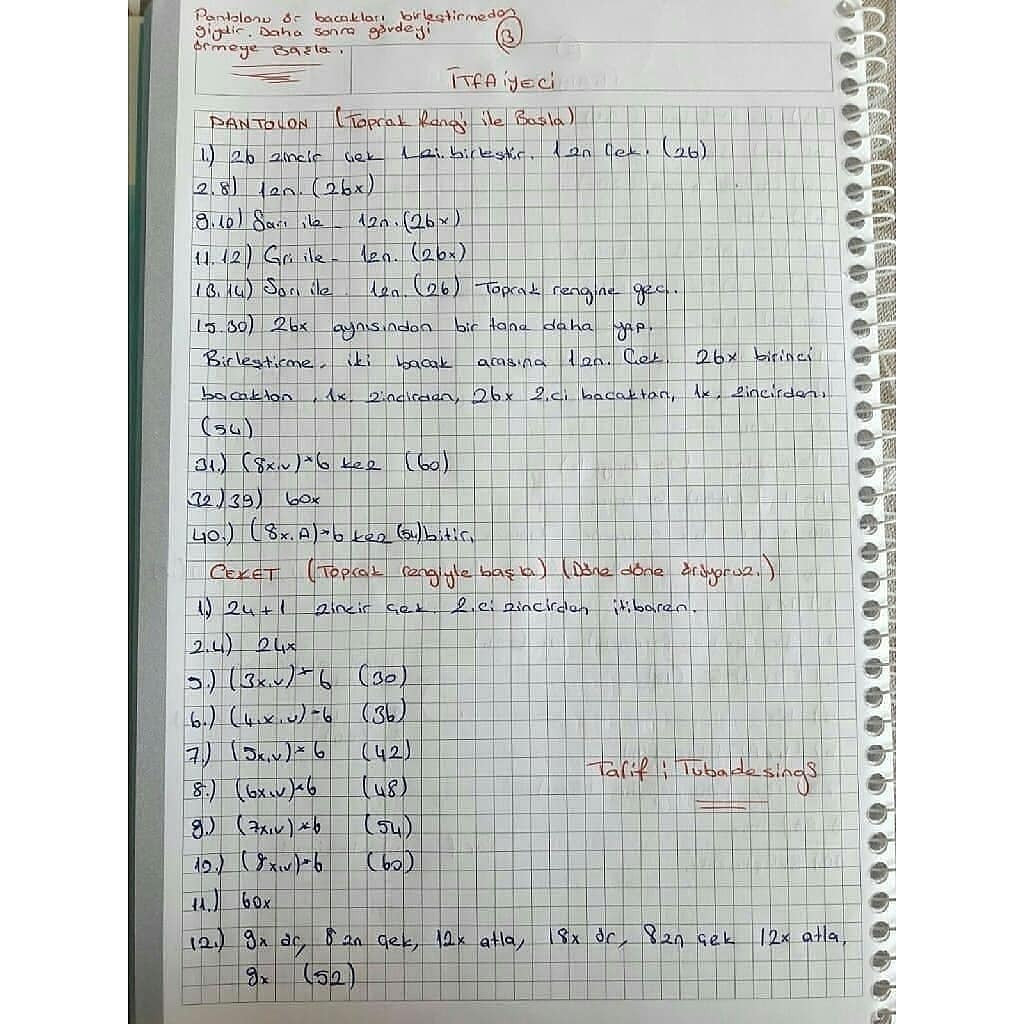 Pantolonu ör bacakları birleştirmeden
giydir. Daha sonra gövdeyi
örmeye Başla.
3
İTFAiYECi
PANTOLON (Toprak Rengi ile Başla)
1.) 26 zincir çek 1.zi.birleştir. 1zn çek. (26)
2.8) 1zn. (26x)
9.10) Sarı ile - 1zn. (26x)
11.12) Gri ile - 1zn. (26x)
13.14) Sarı ile. 1zn. (26) Toprak rengine geç.
15.30) 26x aynısından bir tane daha yap.
Birleştirme, iki bacak arasına 1zn. Çek. 26x birinci
bacaktan, 1x. zincirden, 26x 2.ci bacaktan, 1x. zincirden.
(54)
31.) (8x,v)*6 kez (60)
32.)39) 60x
40.) (8x.A)*6 kez (54) bitir.
CEKET (Toprak rengiyle başla) (Döne döne örüyoruz.)
1.) 24+1 zincir çek. 2.ci zincirden itibaren.
2.4) 24x
5.) (3x,v)*6 (30)
6.) (4.x,v)*6 (36)
7.) (5x,v)*6 (42)
8.) (6x,v)*6 (48)
9.) (7x,v)*6 (54)
10.) (8x,v)*6 (60)
11.) 60x
12.) 9x ör, 8 zn çek, 12x atla, 18x ör, 8zn çek 12x atla,
9x (52)
Tarif : Tubadesings